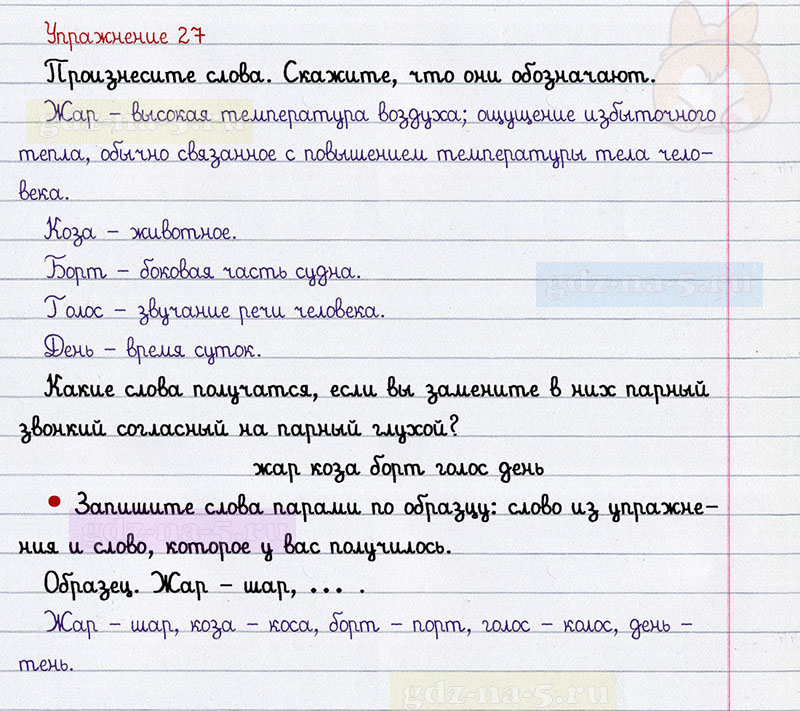 Упражнение 27
Произнесите слова. Скажите, что они обозначают.
Жар – высокая температура воздуха; ощущение избыточного
тепла, обычно связанное с повышением температуры тела чело-
века.
Коза – животное.
Борт – боковая часть судна.
Голос – звучание речи человека.
День – время суток.
Какие слова получатся, если вы замените в них парный
звонкий согласный на парный глухой?
жар коза борт голос день
• Запишите слова парами по образцу: слово из упражне-
ния и слово, которое у вас получилось.
Образец. Жар – шар, ... .
Жар – шар, коза – коса, борт – порт, голос – колос, день –
тень.
gdz-na-5.ru
gdz-na-5.ru
gdz-na-5.ru
gdz-na-5.ru